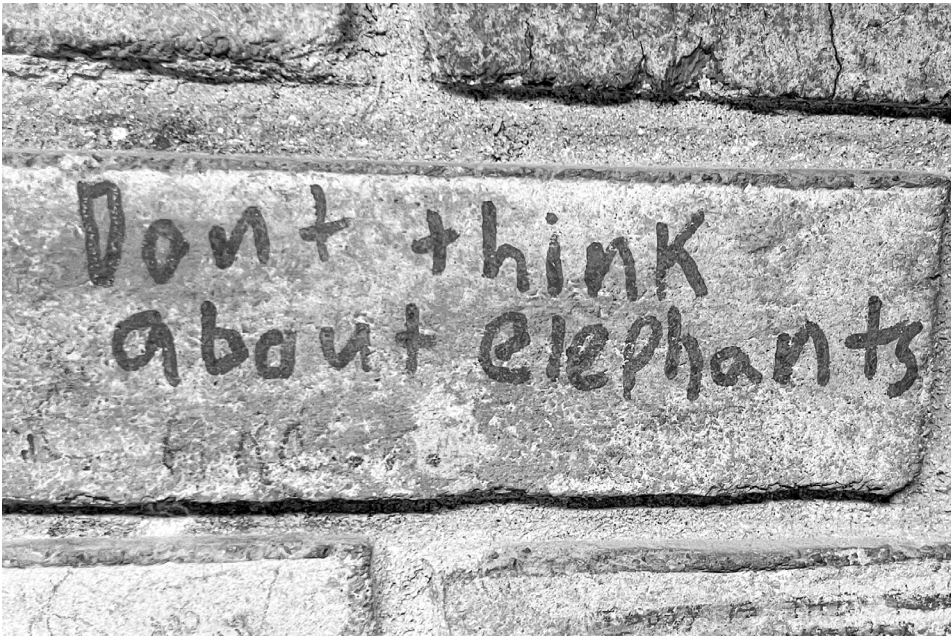 Dont think
about elephants